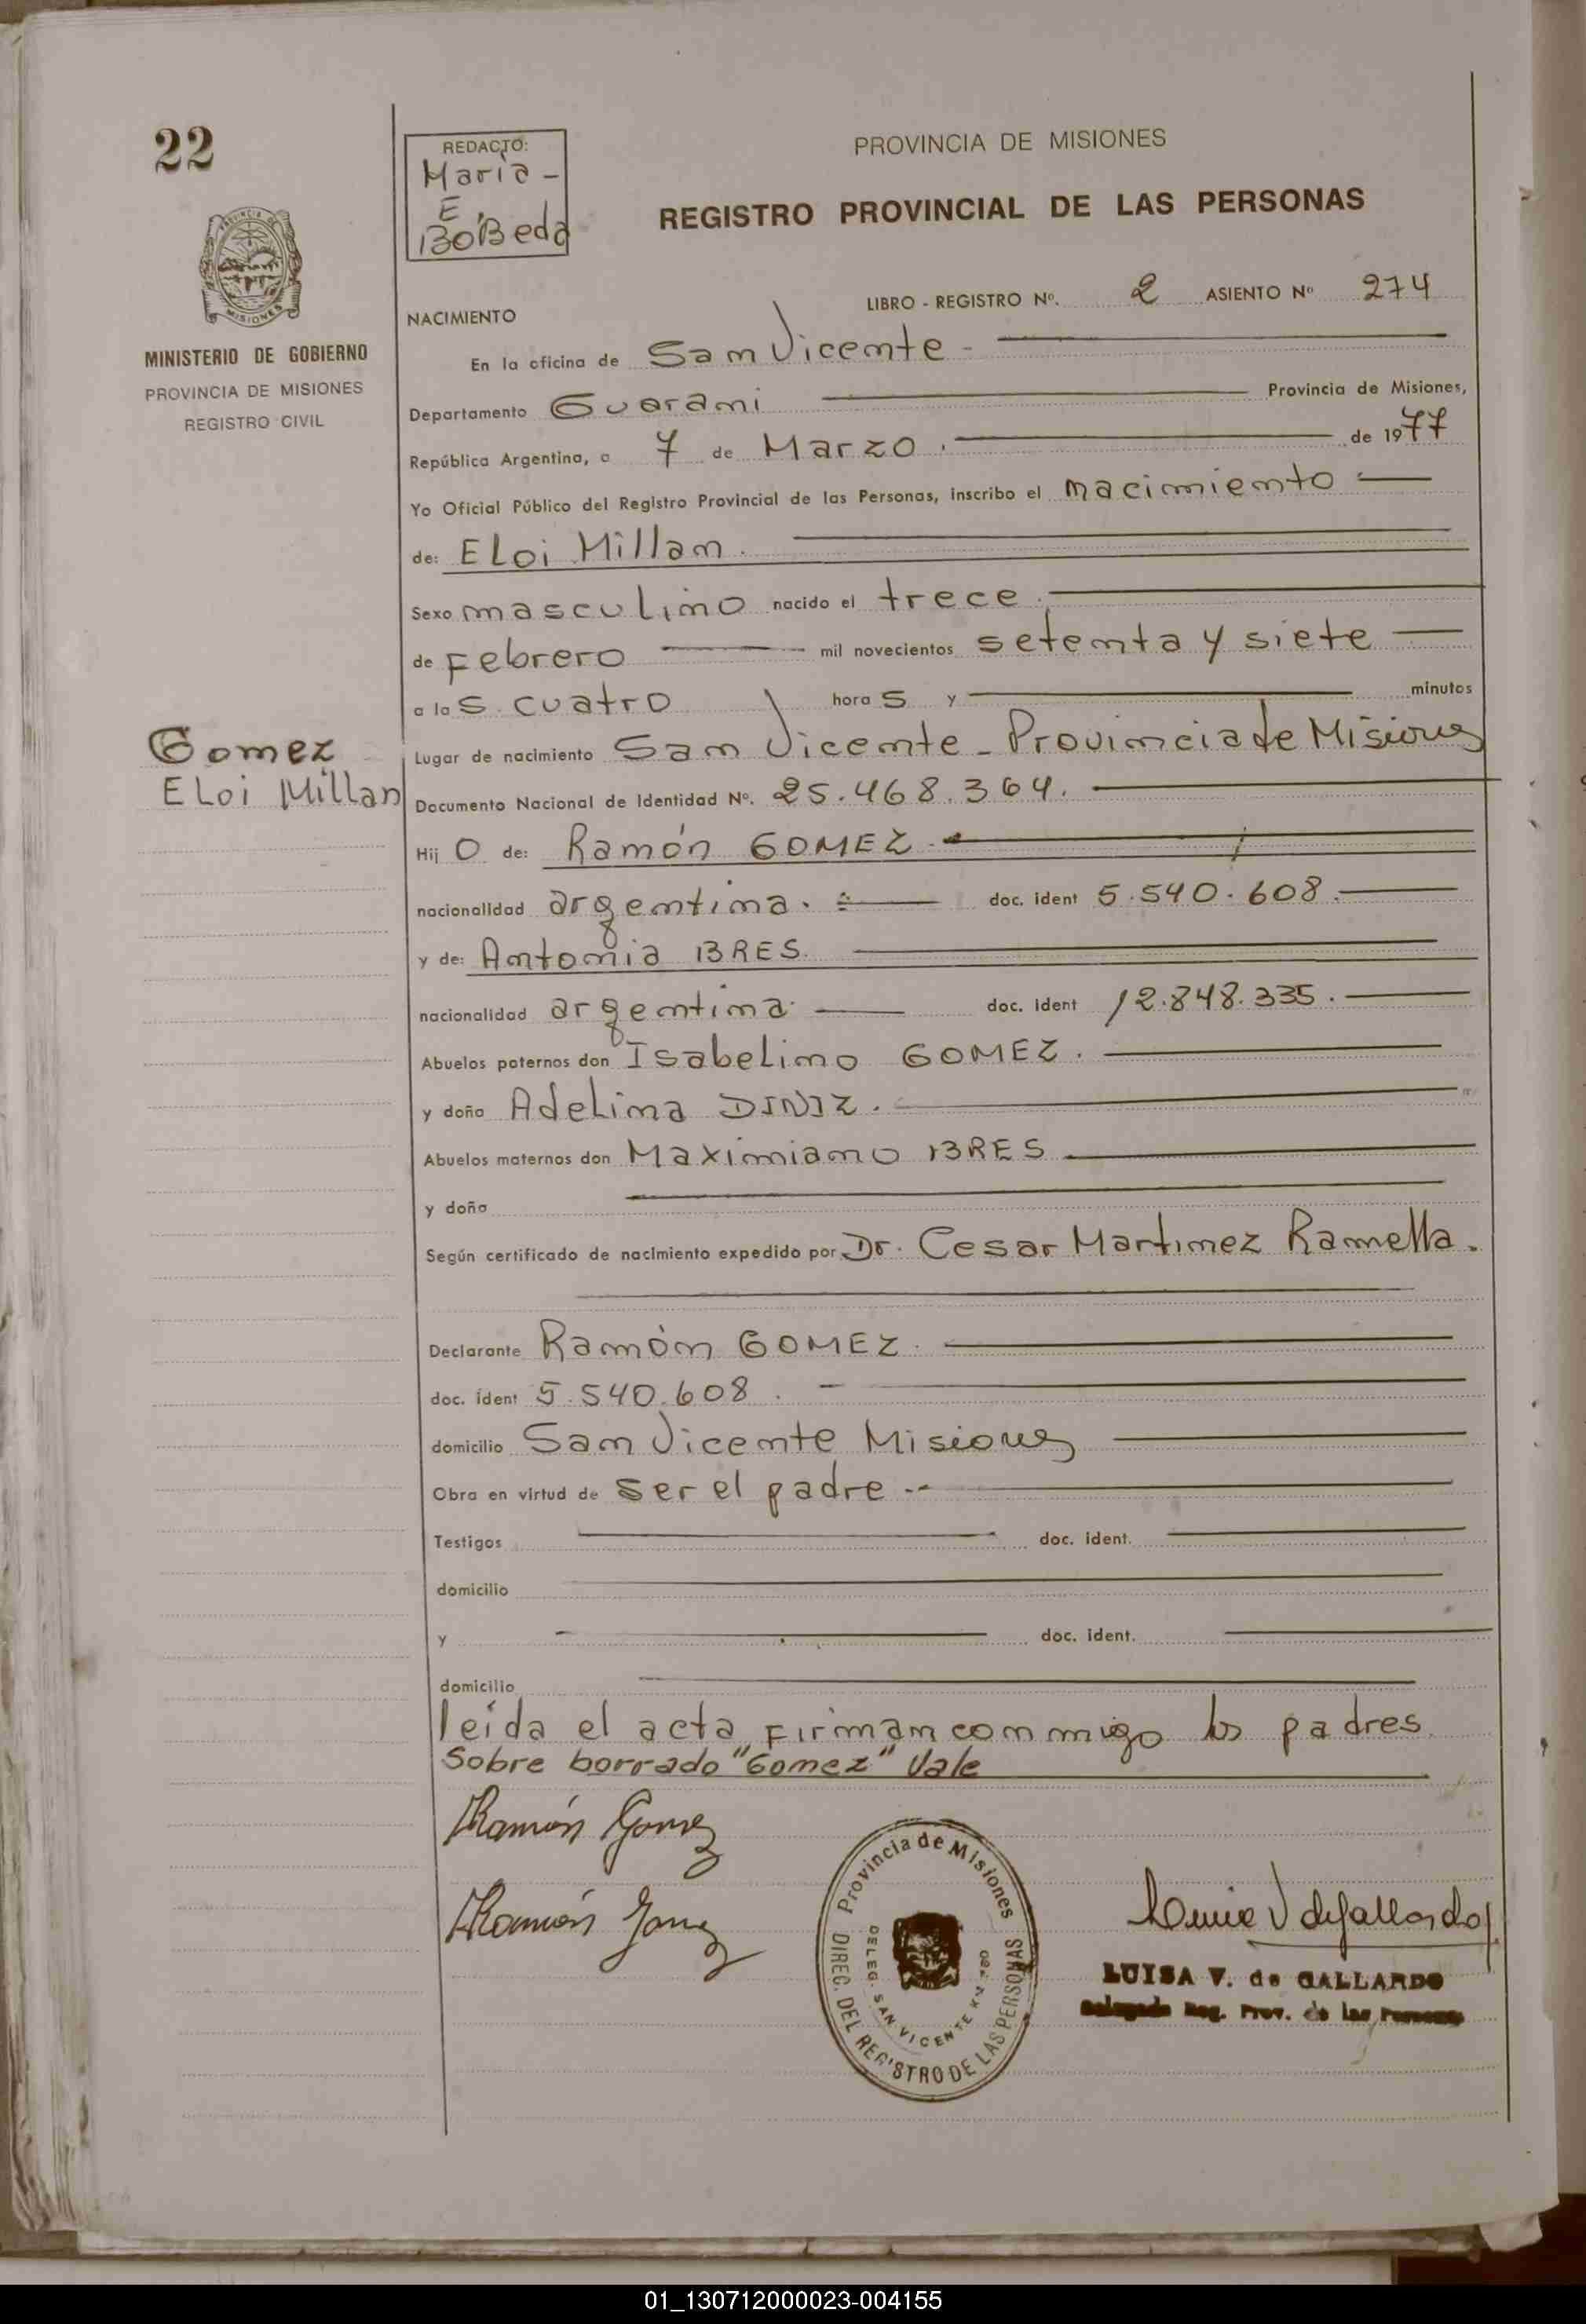 22
REDACTO:
Maria -
E.
BoBeda
PROVINCIA DE MISIONES
REGISTRO PROVINCIAL DE LAS PERSONAS
MISIONES
MINISTERIO DE GOBIERNO
PROVINCIA DE MISIONES
REGISTRO CIVIL
LIBRO - REGISTRO Nº. 2 ASIENTO Nº 274
NACIMIENTO
En la oficina de San Vicente -
Departamento Guarani Provincia de Misiones,
República Argentina, a 7 de Marzo. de 1977
Yo Oficial Público del Registro Provincial de las Personas, inscribo el nacimiento
de: ELoi Millan.
Sexo masculino nacido el trece.
de Febrero mil novecientos setenta y siete
a las cuatro horas y minutos
Gomez
ELoi Millan
Lugar de nacimiento San Vicente - Provincia de Misiones
Documento Nacional de Identidad Nº. 25.468.364.
Hijo de: Ramón GOMEZ.
nacionalidad argentina. doc. ident 5.540.608.
y de: Antonia BRES.
nacionalidad argentina. doc. ident 12.848.335.
Abuelos paternos don Isabelino GOMEZ.
y doña AdeLina DINIZ.
Abuelos maternos don Maximiano BRES
y doña
Según certificado de nacimiento expedido por Dr. Cesar Martinez Ramella.
Declarante Ramón GOMEZ.
doc. ident 5.540.608.
domicilio San Vicente Misiones
Obra en virtud de ser el padre.-
Testigos doc. ident.
domicilio
y doc. ident.
domicilio
leída el acta, Firman conmigo los padres.
Sobre borrado "Gomez" Vale
Ramón Gomez
Ramón Gomez
Provincia de Misiones
DIREC. DEL REGISTRO DE LAS PERSONAS
DELEG. SAN VICENTE
LUISA V. de GALLARDO
Delegada Reg. Prov. de las Personas
01_130712000023-004155